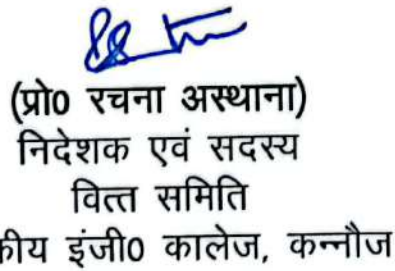 (प्रो0 रचना अस्थाना)
निदेशक एवं सदस्य
वित्त समिति
कीय इंजी0 कालेज, कन्नौज